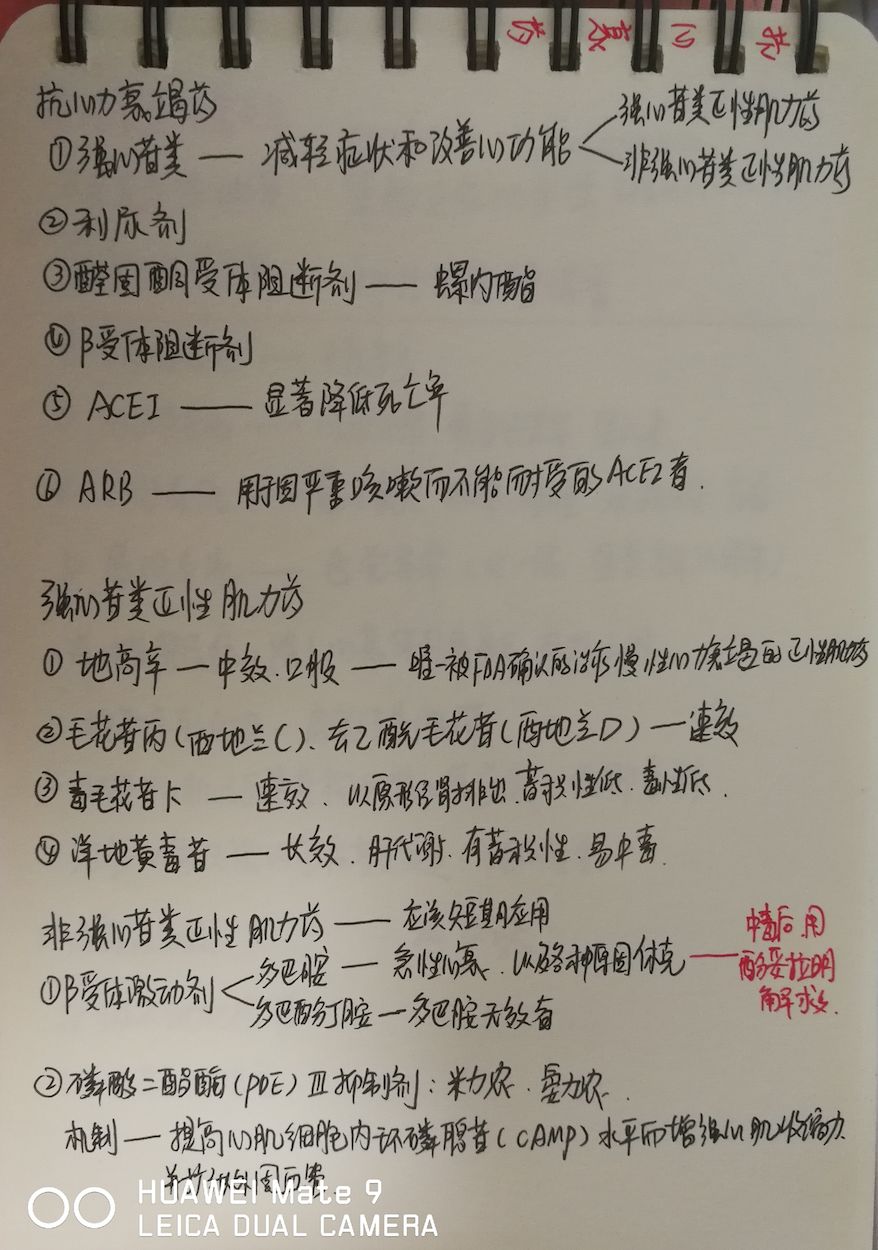 抗心衰药
抗心力衰竭药
①强心苷类 — 减轻症状和改善心功能
强心苷类正性肌力药
非强心苷类正性肌力药
②利尿剂
③醛固酮受体阻断剂 — 螺内酯
④β受体阻断剂
⑤ ACEI — 显著降低死亡率
⑥ ARB — 用于因严重咳嗽而不能耐受的ACEI者.
强心苷类正性肌力药
① 地高辛 — 中效.口服 — 唯一被FDA确认的治疗慢性心力衰竭的正性肌力药
②毛花苷丙(西地兰C)、去乙酰毛花苷(西地兰D) — 速效
③ 毒毛花苷K — 速效、以原形经肾排出.蓄积性低.毒性低.
④ 洋地黄毒苷 — 长效.肝代谢.有蓄积性.易中毒.
非强心苷类正性肌力药 — 应该短期应用
①β受体激动剂
多巴胺 — 急性心衰、以及各种原因休克 — 中毒后用
酚妥拉明
解救.
多巴酚丁胺 — 多巴胺无效者
②磷酸二酯酶(PDE)Ⅲ抑制剂:米力农.氨力农.
机制 — 提高心肌细胞内环磷腺苷(CAMP)水平而增强心肌收缩力
HUAWEI Mate 9
LEICA DUAL CAMERA